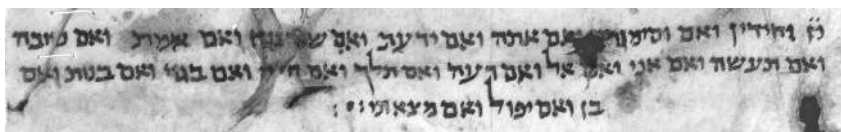 יחידין ואם וסימנ ואם אתה ואם ידעת ואם ואם אמת ואם טובה
ואם תעשה ואם אני ואם אל ואם העל ואם תלך ואם ואם בני ואם בנות ואם
בן ואם יפול ואם מצאתי׃